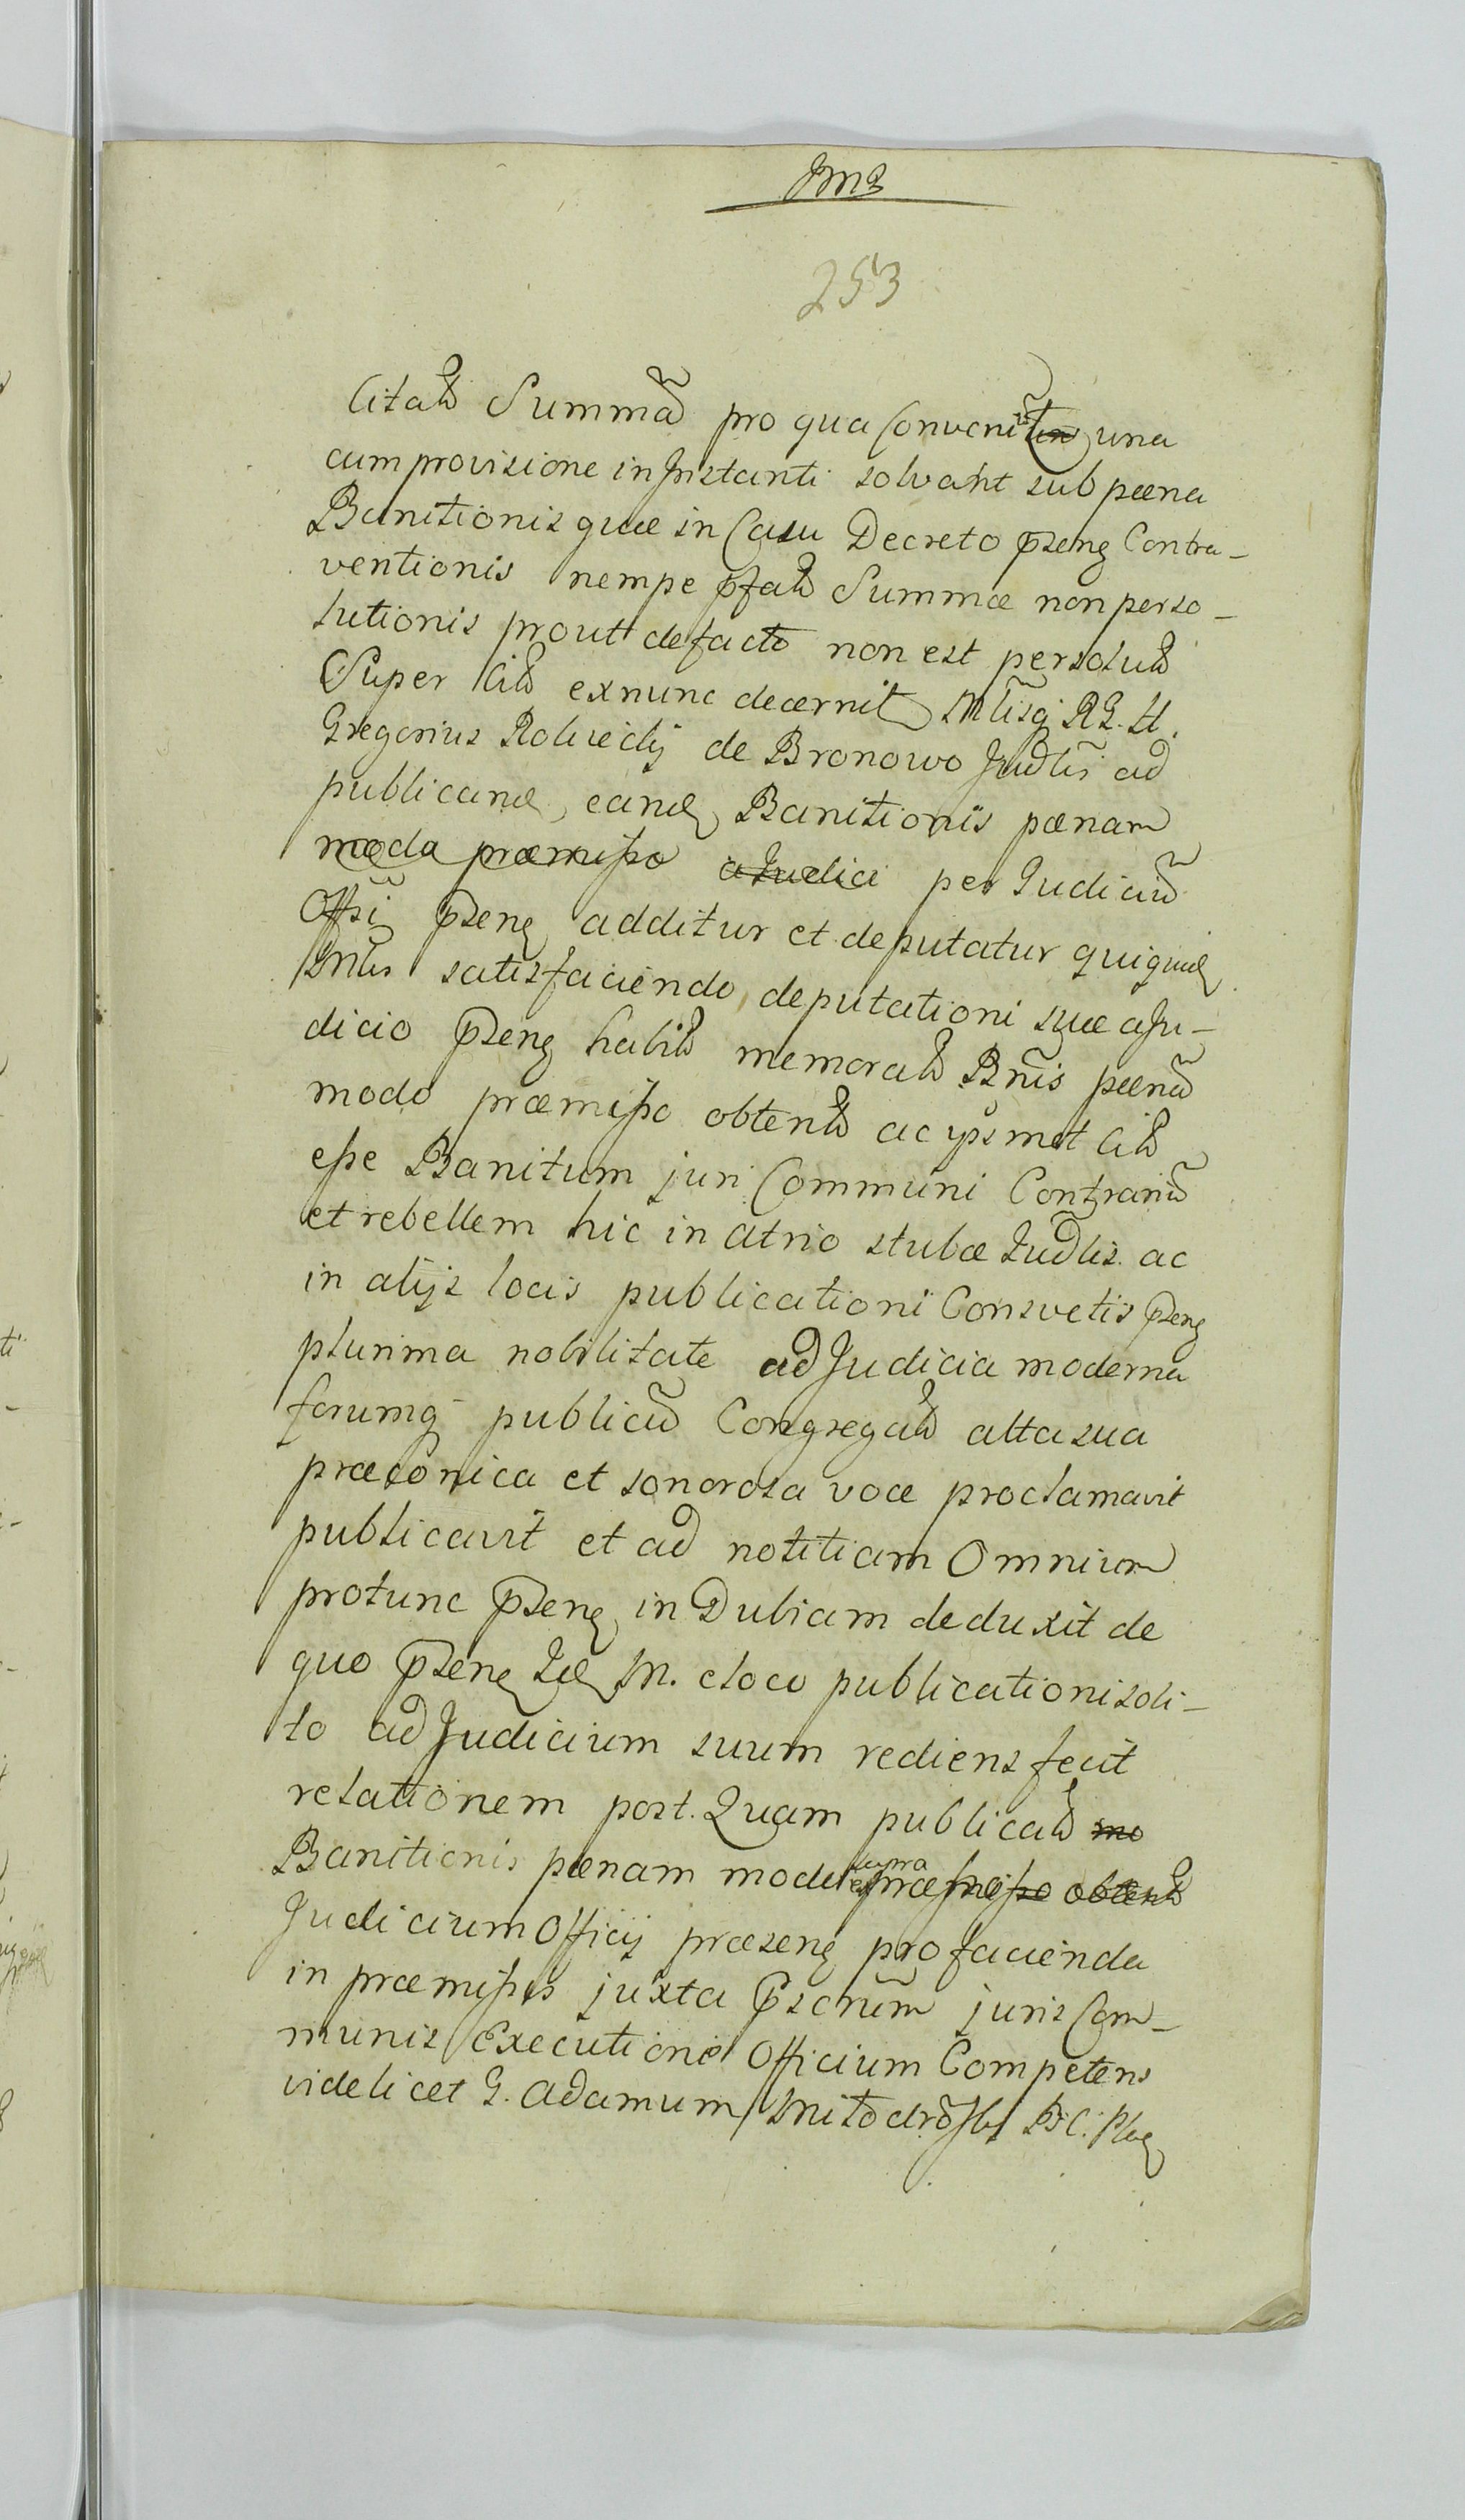 253
Citatã Summã pro qua Conveniũt una
cum provisione in Instanti solvant sub pæna
Banitionis quæ in Casu Decreto pñseng Contra-
ventionis nempe pfatã Summæ non perso-
lutionis prout defacto non est persolutã
Super Citũ ex nunc decernit
Gregorius de Bronowo Judlis ad
publicand eand Banitionis pœnam
modo præmisso a Judici per Judiciũ
Offi pseng additur et deputatur quiquid
Mlis satisfaciendo deputationi suæ a Ju-
dicio pseng habitã memoratã Bnis pænã
modo præmisso obtentã ac ipsmet Citũ
esse Banitum juri Communi Contrariũ
et rebellem hic in atrio stubæ Judlis ac
in alijs locis publicationi Consvetis pseng
plurima nobilitate ad Judicia moderna
forumq publicũ Congregatã alta sua
præconica et sonorosa voce proclamavit
publicavit et ad notitiam Omnium
protunc pseng in Dubiam deduxit de
quo pseng Id M. e loco publicationi soli-
to ad Judicium suum rediens fecit
relationem post Quam publicatã mo
Banitionis pœnam modo supra præmisso obtentã
Judicium Officij præseng pro facienda
in præmissis juxta psorum juris Com-
munis Executione Officium Competens
videlicet G. Adamum